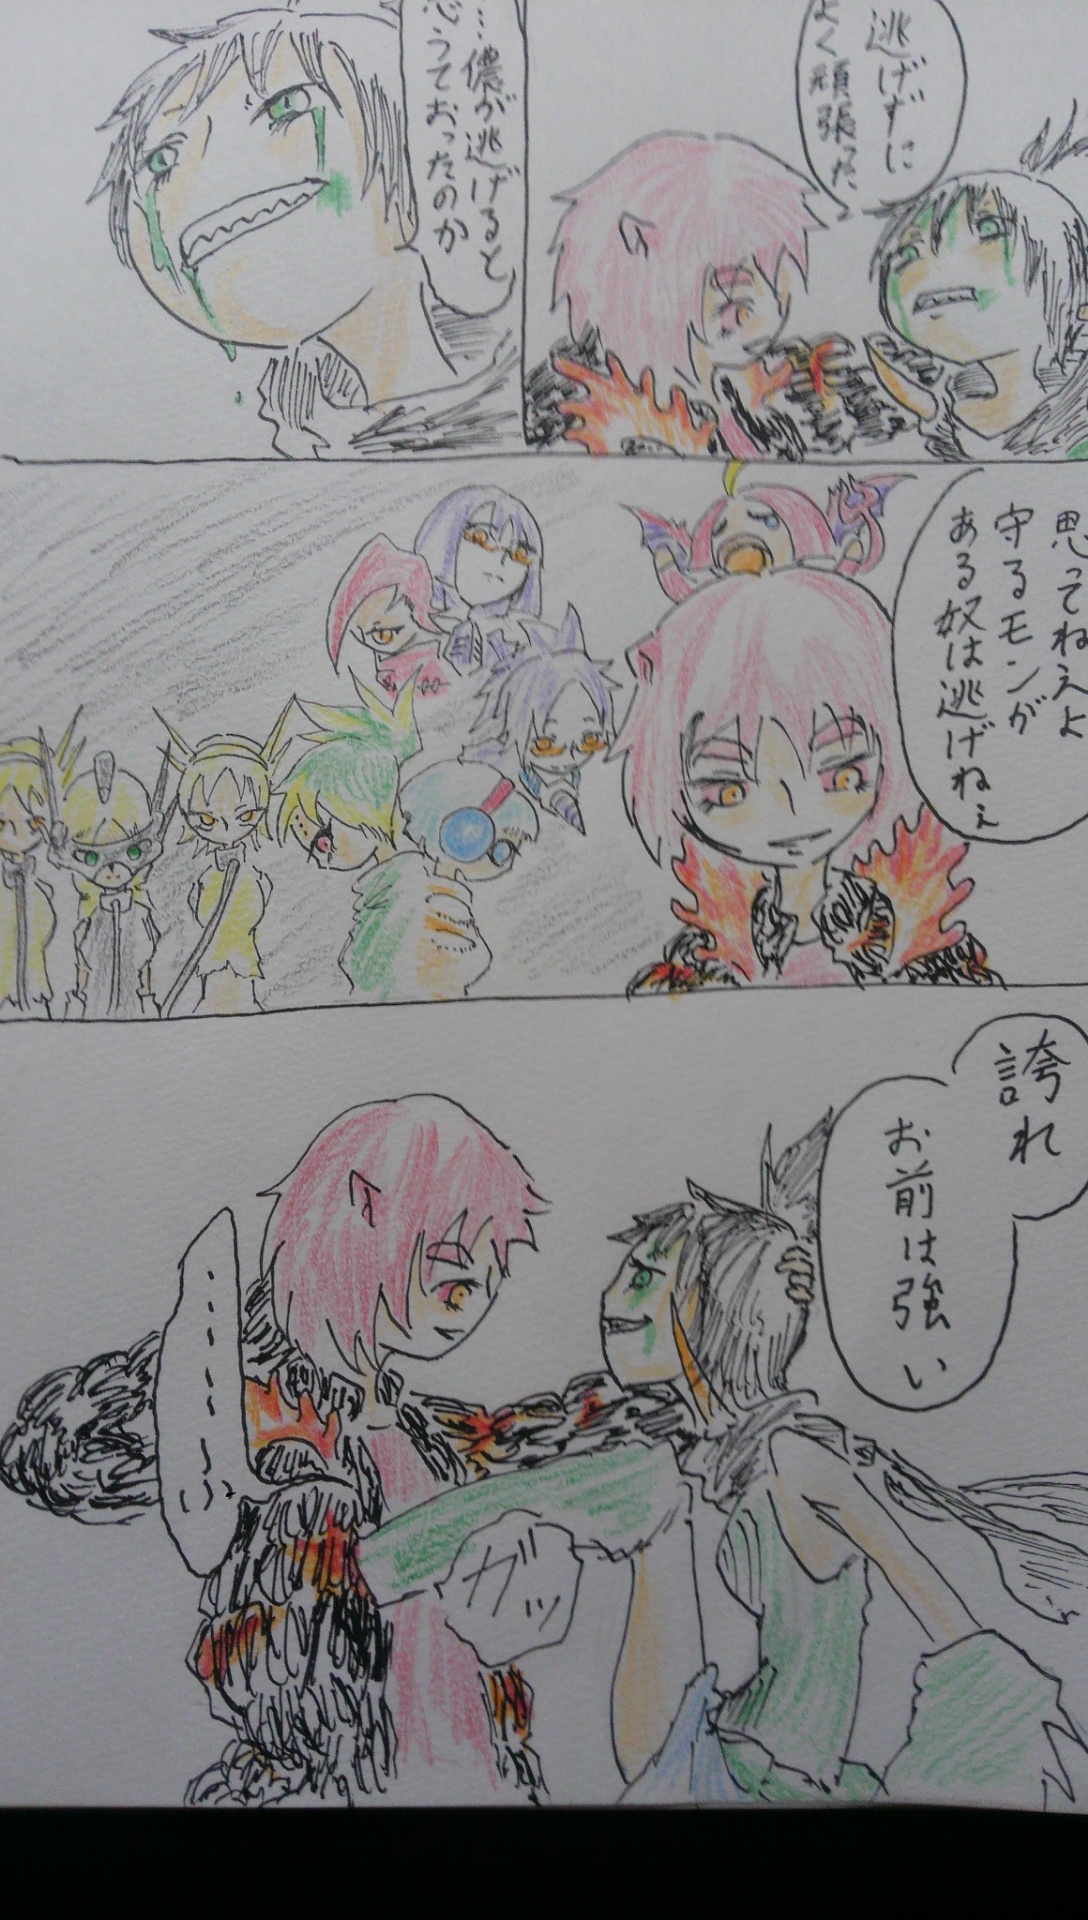 逃げずに
よく頑張った
…儂が逃げると
思うておったのか
思ってねえよ
守るモンが
ある奴は逃げねぇ
誇れ
お前は強い
ガッ